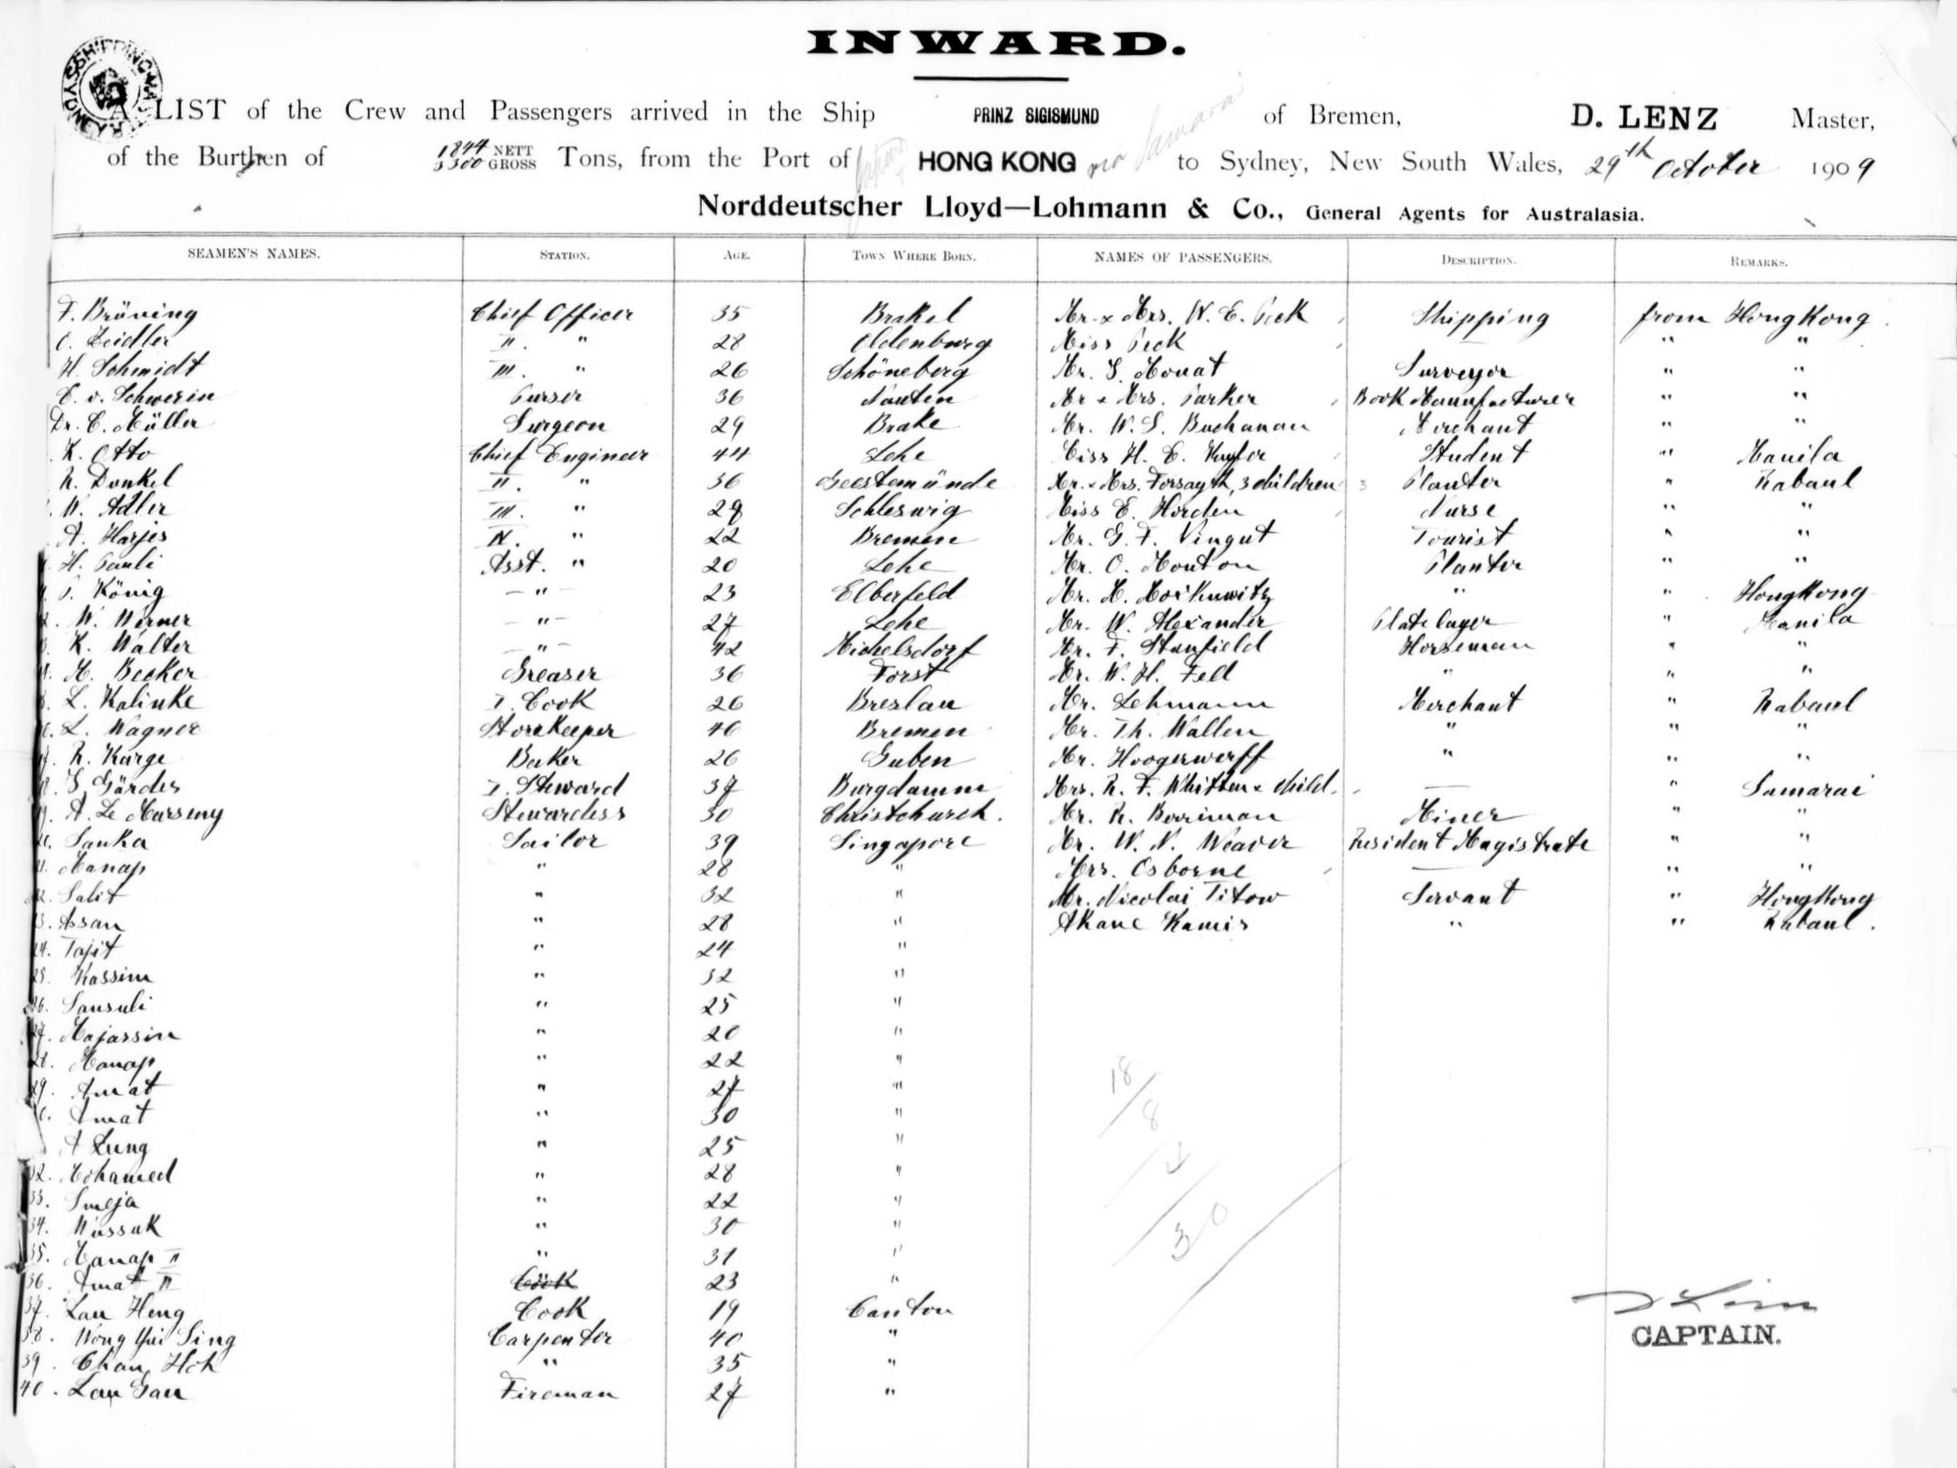 INWARD.
A LIST of the Crew and Passengers arrived in the Ship PRINZ SIGISMUND of Bremen, D. LENZ Master,
of the Burthen of 1844 NETT 3300 GROSS Tons, from the Port of HONG KONG via Samarai to Sydney, New South Wales, 29th October 1909
Norddeutscher Lloyd—Lohmann & Co., General Agents for Australasia.
SEAMEN'S NAMES. STATION. AGE. TOWN WHERE BORN. NAMES OF PASSENGERS. DESCRIPTION. REMARKS.
F. Brüning Chief Officer 35 Brakel Mr. & Mrs. W. E. Peck Shipping from HongKong
C. Zeidler II. " 28 Oldenburg Miss Peck " "
H. Schmidt III. " 26 Schöneberg Mr. S. Mouat Surveyor " "
E. v. Schwerin Purser 36 Mr & Mrs. Parker Book Manufacturer " "
Dr. E. Müller Surgeon 29 Brake Mr. W. S. Buchanan Merchant " "
K. Otto Chief Engineer 44 Lehe Miss H. E. Student " Manila
R. Dunkel II. " 36 Geestemünde Mr. & Mrs. Forsayth, 3 children Planter " Rabaul
W. Adler III. " 29 Schleswig Miss E. Horden Nurse " "
A. Harjes IV. " 22 Bremen Mr. G. F. Vingut Tourist " "
H. Pauli Asst. " 20 Lehe Mr. O. Mouton Planter " "
P. König — " — 23 Elberfeld Mr. M. " " HongKong
W. Werner — " — 27 Lehe Mr. W. Alexander Platelayer " Manila
K. Walter — " — 42 Michelsdorf Mr. F. Stanfield Horseman " "
M. Becker Greaser 36 Forst Mr. W. H. Fell " " "
L. Kalinke I. Cook 26 Breslau Mr. Lehmann Merchant " Rabaul
L. Wagner Storekeeper 46 Bremen Mr. Th. Wallen " " "
R. Karge Baker 26 Guben Mr. Hoogerwerff " " "
S. Gärdes I. Steward 37 Burgdamm Mrs. R. F. Whitten & child. — " Samarai
A. Le Marseny Stewardess 30 Christchurch. Mr. R. Berriman Miner " "
Sanka Sailor 39 Singapore Mr. W. N. Weaver Resident Magistrate " "
Manap " 28 " Mrs. Osborne — " "
Salit " 32 " Mr. Nicolai Titow Servant " HongKong
Assan " 28 " Akane Kamis " " Rabaul.
24. Tajit " 24 "
25. Kassim " 32 "
26. Sansuli " 25 "
27. Majassin " 20 "
28. Manap " 22 "
29. Amat " 27 "
Amat " 30 "
A Lung " 25 "
32. Mohamed " 28 "
33. Smeja " 22 "
34. Wassuk " 30 "
35. Manap II " 31 "
36. Amat II Cook 23 "
37. Lau Heng Cook 19 Canton
38. Wong Yui Sing Carpenter 40 "
39. Chan Hok " 35 "
40. Lau Gau Fireman 27 "
18
8
4
30
CAPTAIN.